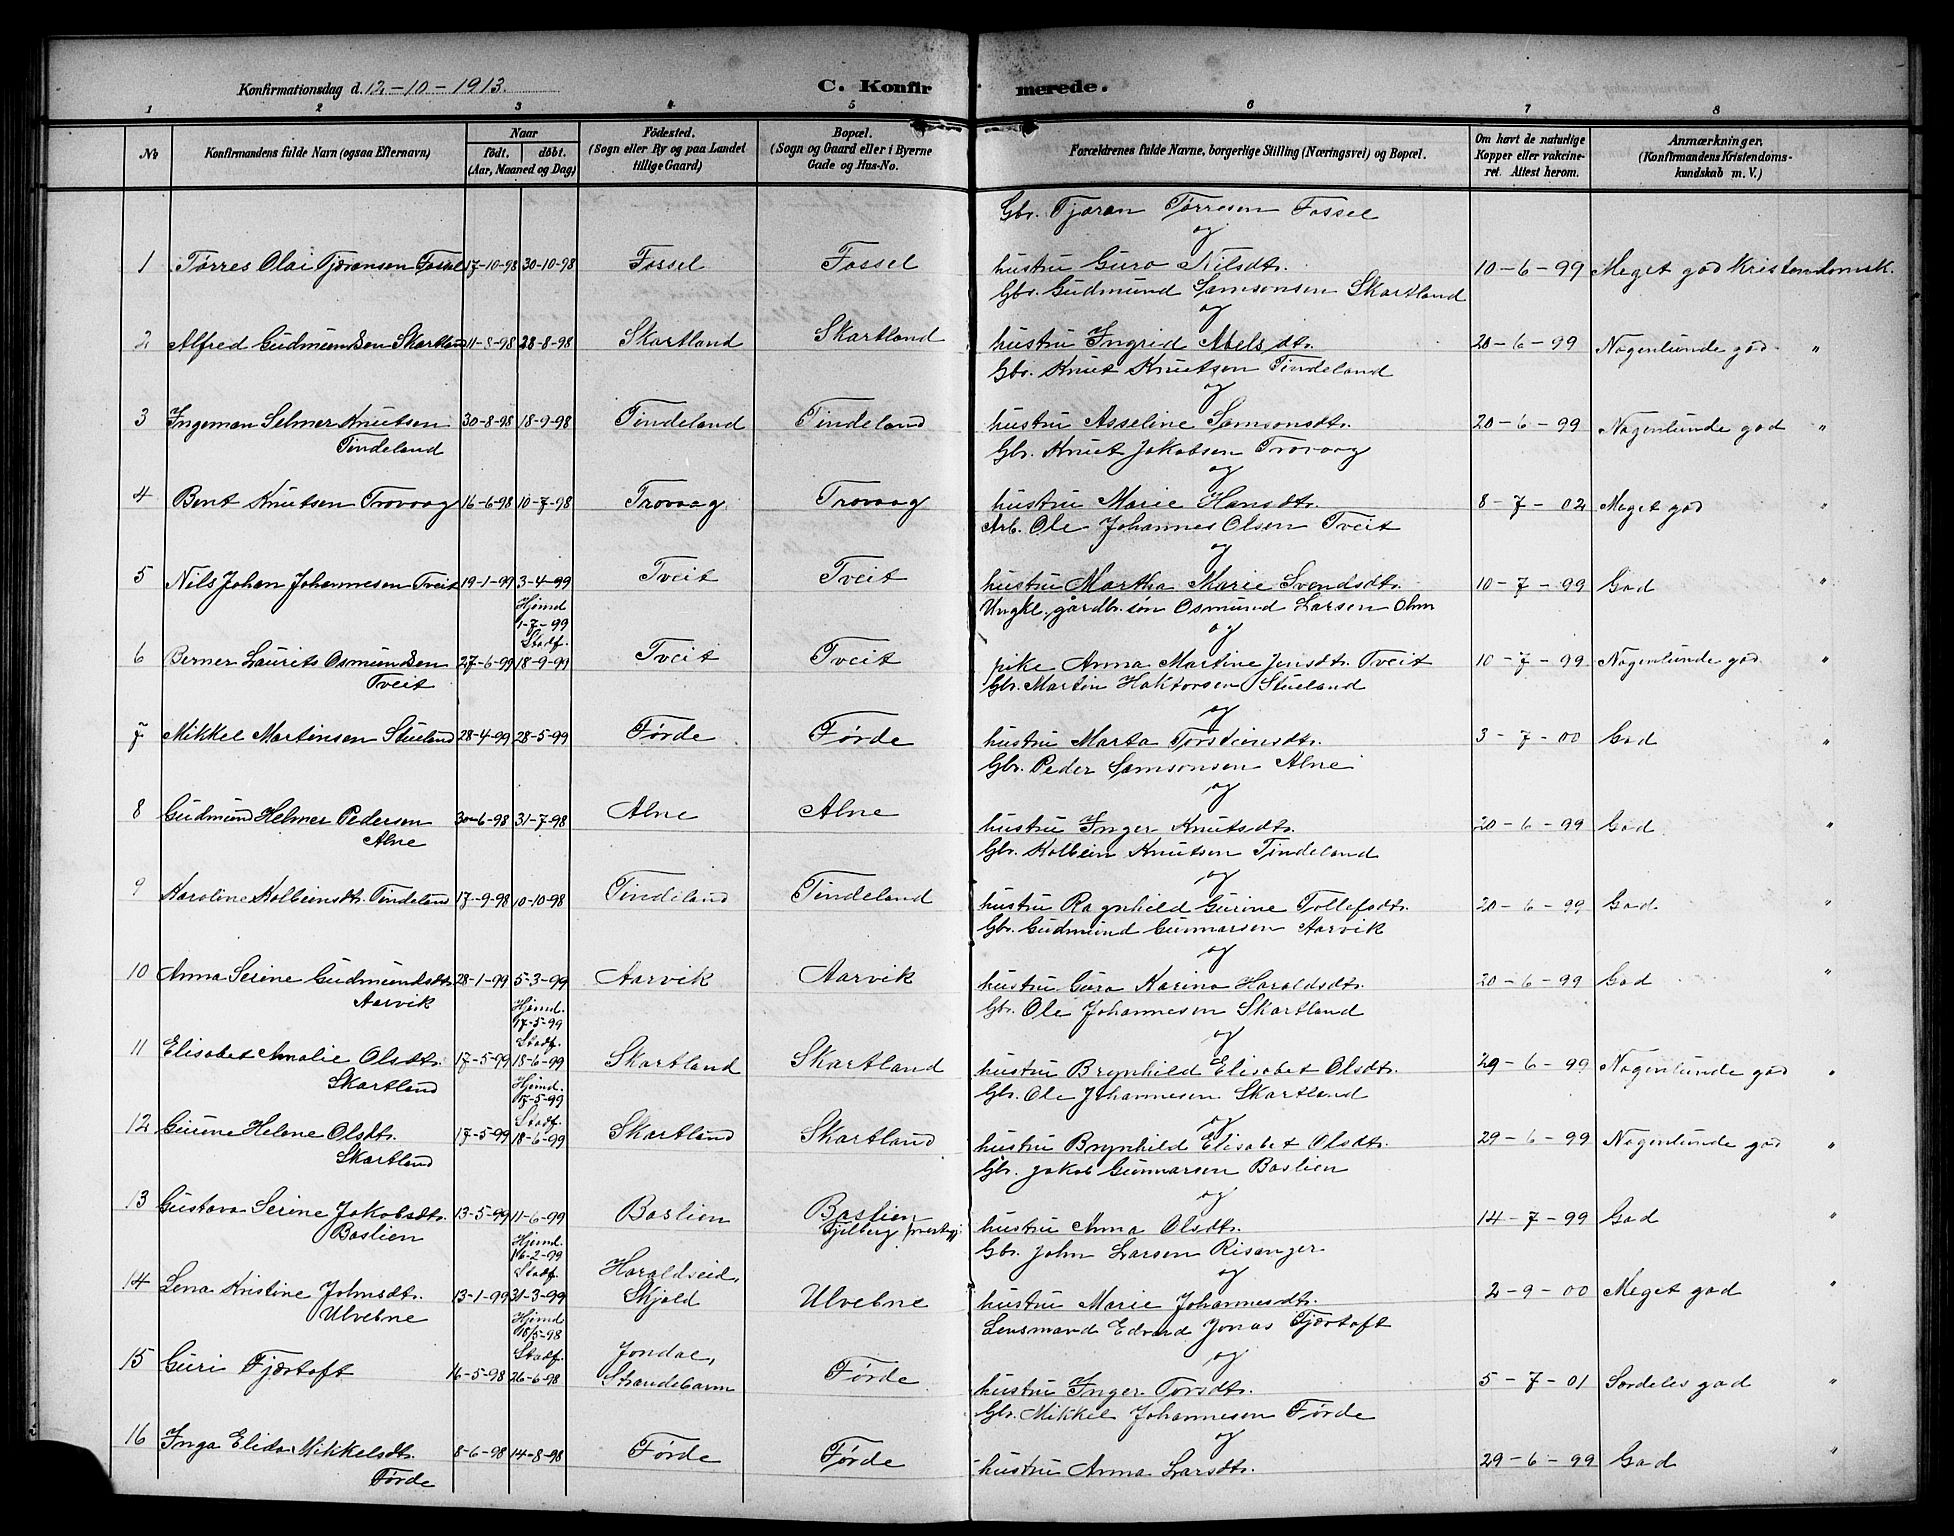 Konfirmationsdag d. 12-10-1913.
C. Konfirmerede.
1 2 3 4 5 6 7 8
No
Konfirmandens fulde Navn (ogsaa Efternavn)
Naar
født. døbt.
(Aar, Maaned og Dag)
Fødested.
(Sogn eller By og paa Landet
tillige Gaard)
Bopæl.
(Sogn og Gaard eller i Byerne
Gade og Hus-No.
Forældrenes fulde Navne, borgerlige Stilling (Næringsvei) og Bopæl.
Om havt de naturlige
Kopper eller vakcine-
ret. Attest herom.
Anmærkninger.
(Konfirmandens Kristendoms-
kundskab m. V.)
Gbr. Tjøran Tørresen Fossel
og
1 Tørres Olai Tjøransen Fossel 17-10-98 30-10-98 Fossel Fossel hustru Guro Nilsdtr. 10-6-99 Meget god Kristendomsk.
Gbr. Gudmund Samsonsen Skartland
og
2 Alfred Gudmundsen Skartland 11-8-98 28-8-98 Skartland Skartland hustru Ingrid Abelsdtr. 20-6-99 Nogenlunde god "
Gbr. Knut Knutsen Tindeland
og
3 Ingeman Selmer Knutsen 30-8-98 18-9-98 Tindeland Tindeland hustru Asseline Samsonsdtr. 20-6-99 Nogenlunde god "
Tindeland
Gbr. Knut Jakobsen Trovaag
og
4 Bent Knutsen Trovaag 16-6-98 10-7-98 Trovaag Trovaag hustru Marie Hansdtr. 8-7-02 Meget god "
Arb. Ole Johannes Olsen Tveit
og
5 Nils Johan Johannesen Tveit 19-1-99 3-4-99 Tveit Tveit hustru Martha Marie Svendsdtr. 10-7-99 God "
Ungkl., gårdbr. søn Osmund Larsen Ølm
Hjemd
1-7-99
Stadf.
og
6 Berner Laurits Osmundsen 27-6-99 18-9-99 Tveit Tveit pike Anna Martine Jensdtr. Tveit 10-7-99 Nogenlunde god "
Tveit
Gbr. Martin Haktorsen Stueland
og
7 Mikkel Martinsen Stueland 28-4-99 28-5-99 Førde Førde hustru Marta Torsteinsdtr. 3-7-00 God "
Gbr. Peder Samsonsen Alne
og
8 Gudmund Helmer Pedersen 30-6-98 31-7-98 Alne Alne hustru Inger Knutsdtr. 20-6-99 God "
Alne
Gbr. Kolbein Knutsen Tindeland
og
9 Karoline Kolbeinsdtr. Tindeland 17-9-98 10-10-98 Tindeland Tindeland hustru Ragnhild Gurine Tollefsdtr. 20-6-99 God "
Gbr. Gudmund Gunnarsen Aarvik
og
10 Anna Serine Gudmundsdtr. 28-1-99 5-3-99 Aarvik Aarvik hustru Guro Karina Haraldsdtr. 20-6-99 God "
Aarvik
Gbr. Ole Johannesen Skartland
Hjemd.
17-5-99
Stadf.
og
11 Elisabet Amalie Olsdtr. 17-5-99 18-6-99 Skartland Skartland hustru Brynhild Elisabet Olsdtr. 29-6-99 Nogenlunde god "
Skartland
Gbr. Ole Johannesen Skartland
Hjemd.
17-5-99
Stadf.
og
12 Gurine Helene Olsdtr. 17-5-99 18-6-99 Skartland Skartland hustru Brynhild Elisabet Olsdtr. 29-6-99 Nogenlunde god "
Skartland
Gbr. Jakob Gunnarsen Baslien
og
13 Gustava Serine Jakobsdtr. 13-5-99 11-6-99 Baslien Baslien hustru Anna Olsdtr. 14-7-99 God "
Baslien
Fjelberg
Gbr. John Larsen Risanger
Hjemd.
16-2-99
Stadf.
og
14 Lena Kristine Johnsdtr. 13-1-99 31-3-99 Haraldseid, Skjold Ulvebne hustru Marie Johannesdtr. 2-9-00 Meget god "
Ulvebne
Lensmand Edvard Jonas Fjærtoft
Hjemd
18/5-98
Stadf.
og
15 Guri Fjærtoft 16-5-98 26-6-98 Jondal, Strandebarm Førde hustru Inger Torsdtr. 5-7-01 Særdeles god "
Gbr. Mikkel Johannesen Førde
og
16 Inga Elida Mikkelsdtr. 8-6-98 14-8-98 Førde Førde hustru Anna Larsdtr. 29-6-99 God "
Førde